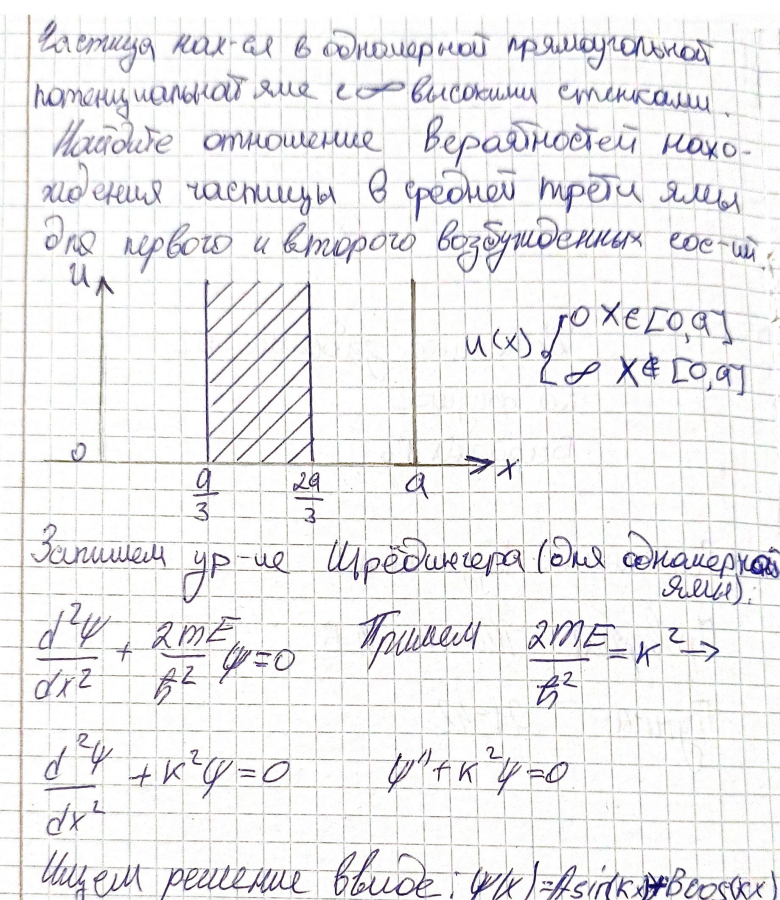 Частица нах-ся в одномерной прямоугольной
потенциальной яме с ∞ высокими стенками.
Найдите отношение вероятностей нахо-
ждения частицы в средней трети ямы
для первого и второго возбужденных сос-ий.
U
U(x) { 0 X∈[0,a]
∞ X∉[0,a]
0
a/3 2a/3 a x
Запишем ур-ие Шрёдингера (для одномерной
ямы):
d²Ψ/dx² + 2mE/ħ² Ψ=0 Примем 2mE/ħ² = k² →
d²Ψ/dx² + k²Ψ=0 Ψ''+k²Ψ=0
Ищем решение ввиде: Ψ(x)=Asin(kx)+Bcos(kx)